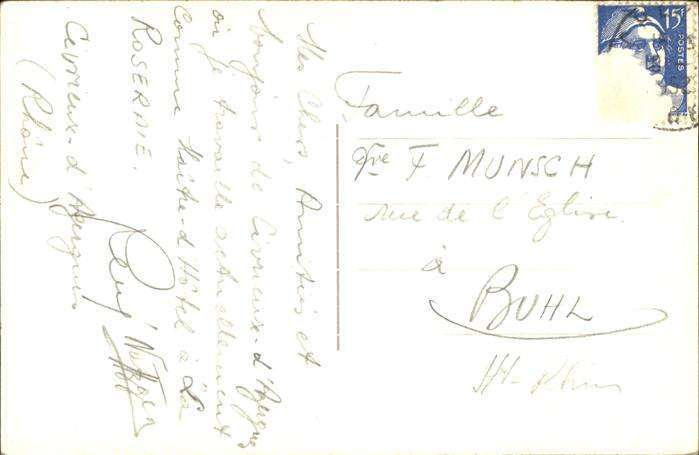 Mes Chers, Amitiés et
bonjour de Civrieux-d'Azergues
où je travaille actuellement
comme Maître-d'Hôtel à La
ROSERAIE.
Civrieux-d'Azergues
(Rhône)
Famille
F MUNSCH
rue de l'Eglise
à
BUHL
Ht-Rhin
15F
POSTES